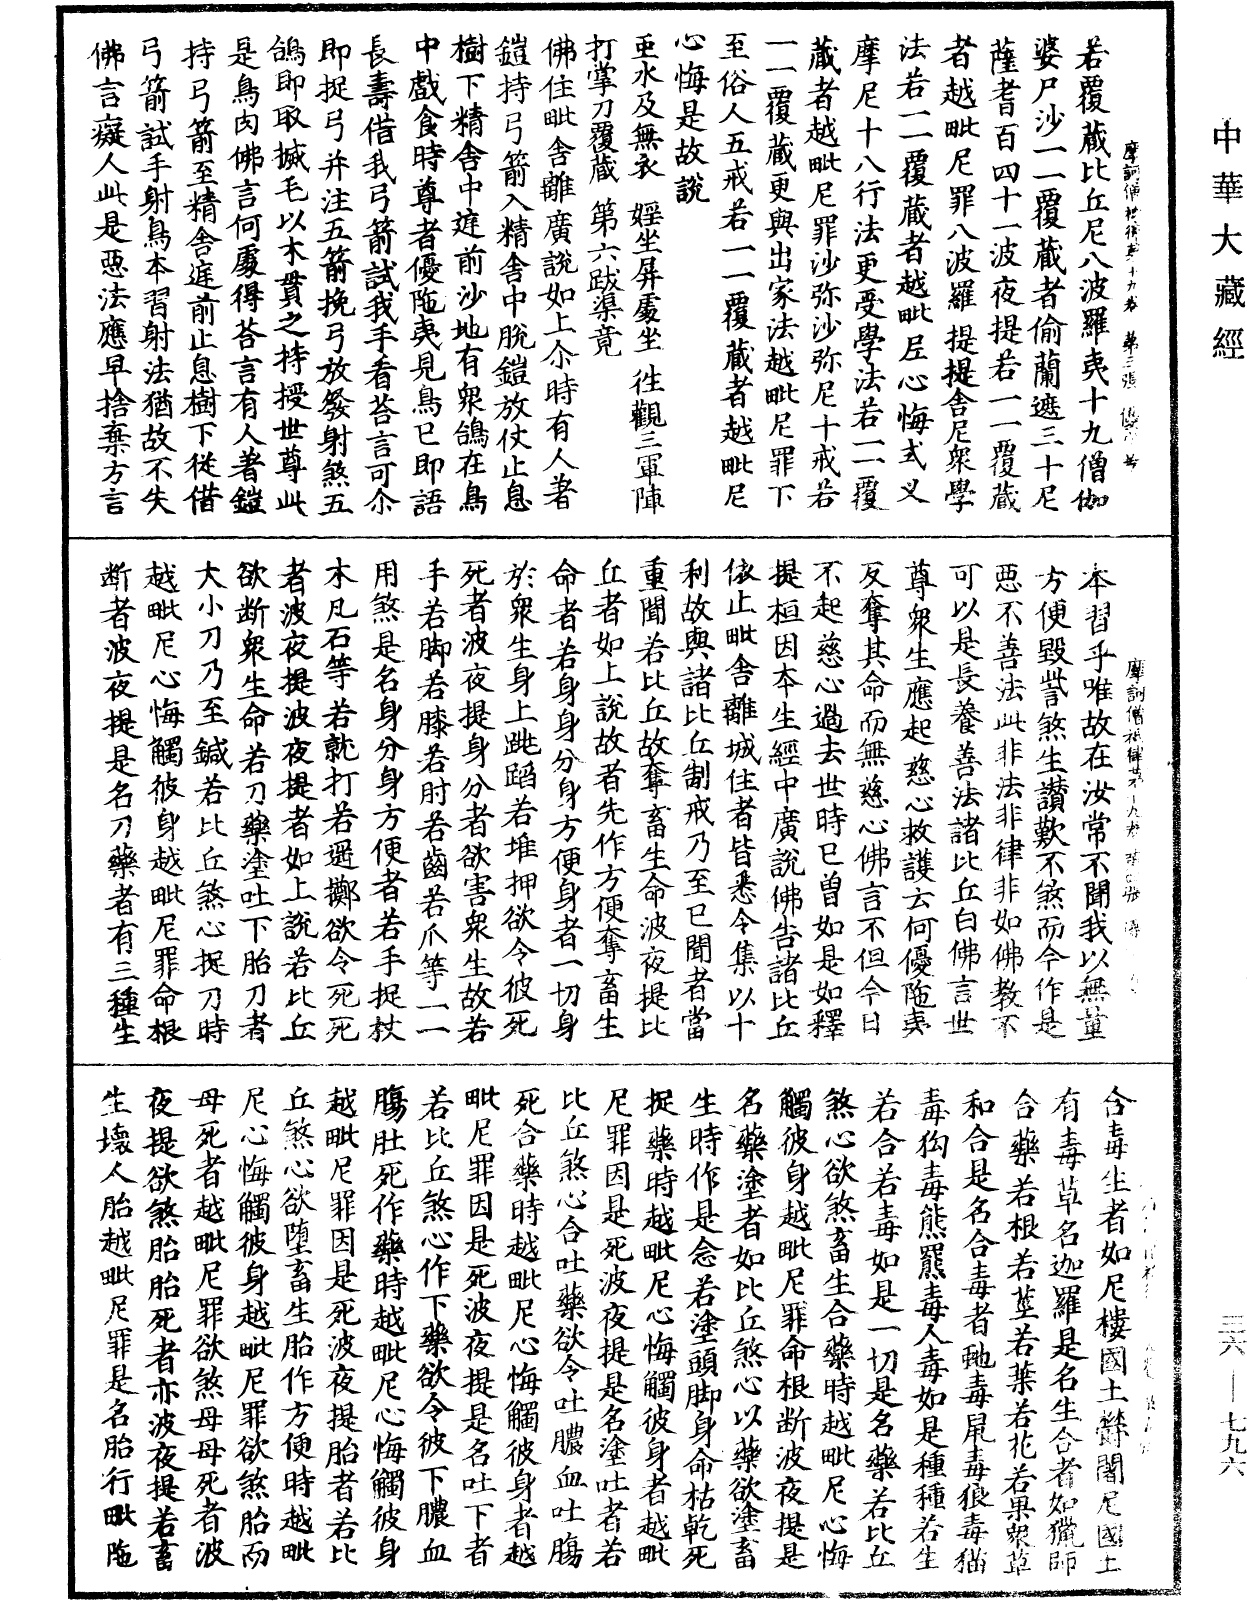 中華大藏經
若覆藏比丘尼八波羅夷十九僧伽
婆尸沙一一覆藏者偷蘭遮三十尼
薩耆百四十一波夜提若一一覆藏
者越毗尼罪八波羅提提舍尼衆學
法若一一覆藏者越毗尼心悔式叉
摩尼十八行法更受學法若一一覆
藏者越毗尼罪沙弥沙弥尼十戒若
一一覆藏更與出家法越毗尼罪下
至俗人五戒若一一覆藏者越毗尼
心悔是故說
虫水及無衣 婬坐屏處坐 往觀三軍陣
打掌刀覆藏 第六跋渠竟
佛住毗舍離廣說如上尒時有人著
鎧持弓箭入精舍中脫鎧放仗止息
樹下精舍中庭前沙地有衆鴿在鳥
中戲食時尊者優陁夷見鳥已即語
長壽借我弓箭試我手看荅言可尒
即捉弓并注五箭挽弓放發射煞五
鴿即取搣毛以木貫之持授世尊此
是鳥肉佛言何處得荅言有人著鎧
持弓箭至精舍庭前止息樹下從借
弓箭試手射鳥本習射法猶故不失
佛言癡人此是惡法應早捨棄方言
摩訶僧祇律第十九卷 第三張
本習乎唯故在汝常不聞我以無量
方便毀呰煞生讚歎不煞而今作是
惡不善法此非法非律非如佛教不
可以是長養善法諸比丘白佛言世
尊衆生應起慈心救護云何優陁夷
反奪其命而無慈心佛言不但今日
不起慈心過去世時已曾如是如釋
提桓因本生經中廣說佛告諸比丘
依止毗舍離城住者皆悉令集以十
利故與諸比丘制戒乃至已聞者當
重聞若比丘故奪畜生命波夜提比
丘者如上說故者先作方便奪畜生
命者若身身分身方便身者一切身
於衆生身上跳蹈若堆押欲令彼死
死者波夜提身分者欲害衆生故若
手若脚若膝若肘若齒若爪等一一
用煞是名身分身方便者若手捉杖
木凡石等若就打若遥擲欲令死死
者波夜提波夜提者如上說若比丘
欲断衆生命若刀藥塗吐下胎刀者
大小刀乃至鍼若比丘煞心捉刀時
越毗尼心悔觸彼身越毗尼罪命根
断者波夜提是名刀藥者有三種生
合毒生者如尼樓國土欝闍尼國土
有毒草名迦羅是名生合者如獵師
合藥若根若莖若葉若花若果衆草
和合是名合毒者虵毒鼠毒狼毒猫
毒狗毒熊羆毒人毒如是種種若生
若合若毒如是一切是名藥若比丘
煞心欲煞畜生合藥時越毗尼心悔
觸彼身越毗尼罪命根断波夜提是
名藥塗者如比丘煞心以藥欲塗畜
生時作是念若塗頭脚身命枯乾死
捉藥時越毗尼心悔觸彼身者越毗
尼罪因是死波夜提是名塗吐者若
比丘煞心合吐藥欲令吐膿血吐膓
死合藥時越毗尼心悔觸彼身者越
毗尼罪因是死波夜提是名吐下者
若比丘煞心作下藥欲令彼下膿血
膓肚死作藥時越毗尼心悔觸彼身
越毗尼罪因是死波夜提胎者若比
丘煞心欲墮畜生胎作方便時越毗
尼心悔觸彼身越毗尼罪欲煞胎而
母死者越毗尼罪欲煞母母死者波
夜提欲煞胎胎死者亦波夜提若畜
生壞人胎越毗尼罪是名胎行毗陁
三六—七九六